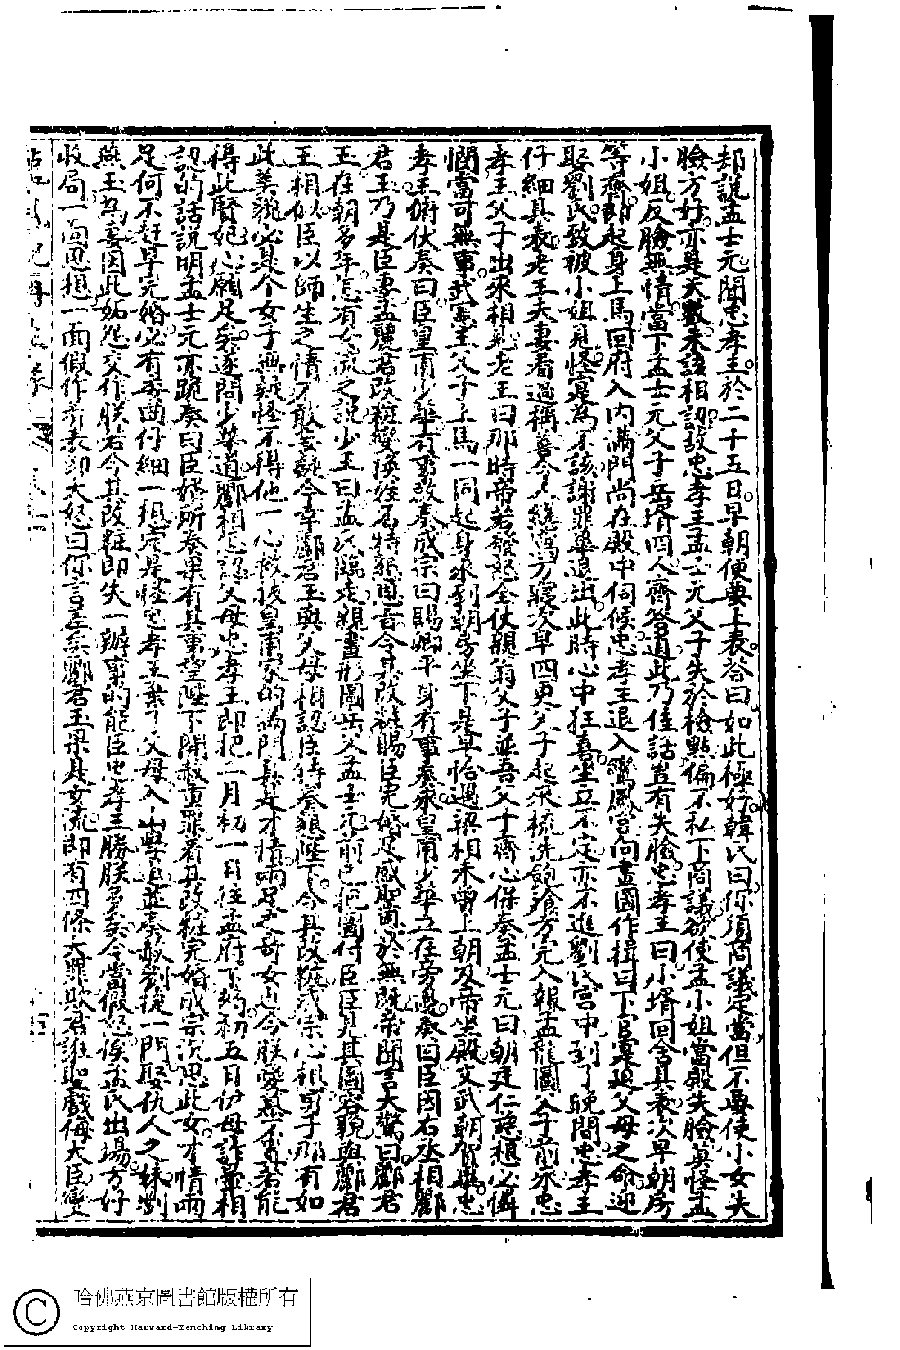 却說孟士元聞忠孝王於二十五日早朝便要上表答曰如此極好韓氏曰你須商議定當但不要使小女失
臉方好亦是天數未該相認故忠孝王孟士元父子失於檢點偏不私下商議欲使孟小姐當殿失臉莫怪孟
小姐反臉無情當下孟士元父子岳壻四人齊答道此乃佳話豈有失臉忠孝王曰小壻回舍具表次早朝房
等齊即起身上馬回府入內滿門尚在殿中伺候忠孝王退入鸞鳳宮向畫圖作揖曰下官為退父母之命迎
娶劉氏致被小姐見怪實為不該謝罪畢退出此時心中狂喜坐立不定亦不進劉氏宮中到了晚間忠孝王
仔細具表老王夫妻看過稱善令人繕寫方寢次早四更父子起來梳洗飽飡方完入報孟龍圖父子前來忠
孝王父子出來相見老王曰那時帝若發怒全仗親翁父子並吾父子齊心併奏孟士元曰朝廷仁聰想必憐
憫當可無事武憲王父子上馬一同起身來到朝房坐下是早恰遇梁相未曾上朝及帝坐殿文武朝賀畢忠
孝王俯伏奏曰臣皇甫少華有事啟奏成宗曰賜卿平身有事奏來皇甫少華立在旁邊奏曰臣因右丞相酈
君玉乃是臣妻孟麗君改粧變換姓名特懇恩旨令其改粧賜臣完婚足感聖恩於無既帝聞言大驚曰酈君
玉在朝多年怎有女流之說少王曰孟氏臨走親畫形圖岳父孟士元前已把圖付臣臣見其圖容貌與酈君
玉相似臣以師生之情不敢妄疑今幸酈君玉與父母相認臣特奏懇陛下令其改粧成宗心想男子那有如
此美貌必是个女子無疑怪不得他一心救拔皇甫家的滿門真是才情兩足的奇女也今朕愛慕不置若能
得此賢妃心願足矣遂問少華道酈相怎認父母忠孝王即把二月初一日往孟府下葯初五日伊母詐病相
認的話說明孟士元亦跪奏曰臣婿所奏果有其事望陛下開赦重罪着其改粧完婚成宗沉思此女才情兩
足何不趕早完婚必有委曲付細一想定是怪忠孝王葉了父母入山學道並奏赦劉捷一門娶仇人之妹劉
燕玉為妻因此妬怨交作朕若令其改粧即失一辦事的能臣忠孝王勝朕多矣今當假怒俟孟氏出場方好
收局一面思想一面假作看表即大怒曰你言差矣酈君玉果是女流即有四條大罪欺君誑聖戲侮大臣變
哈佛燕京圖書館版權所有
Copyright Harvard-Yenching Library